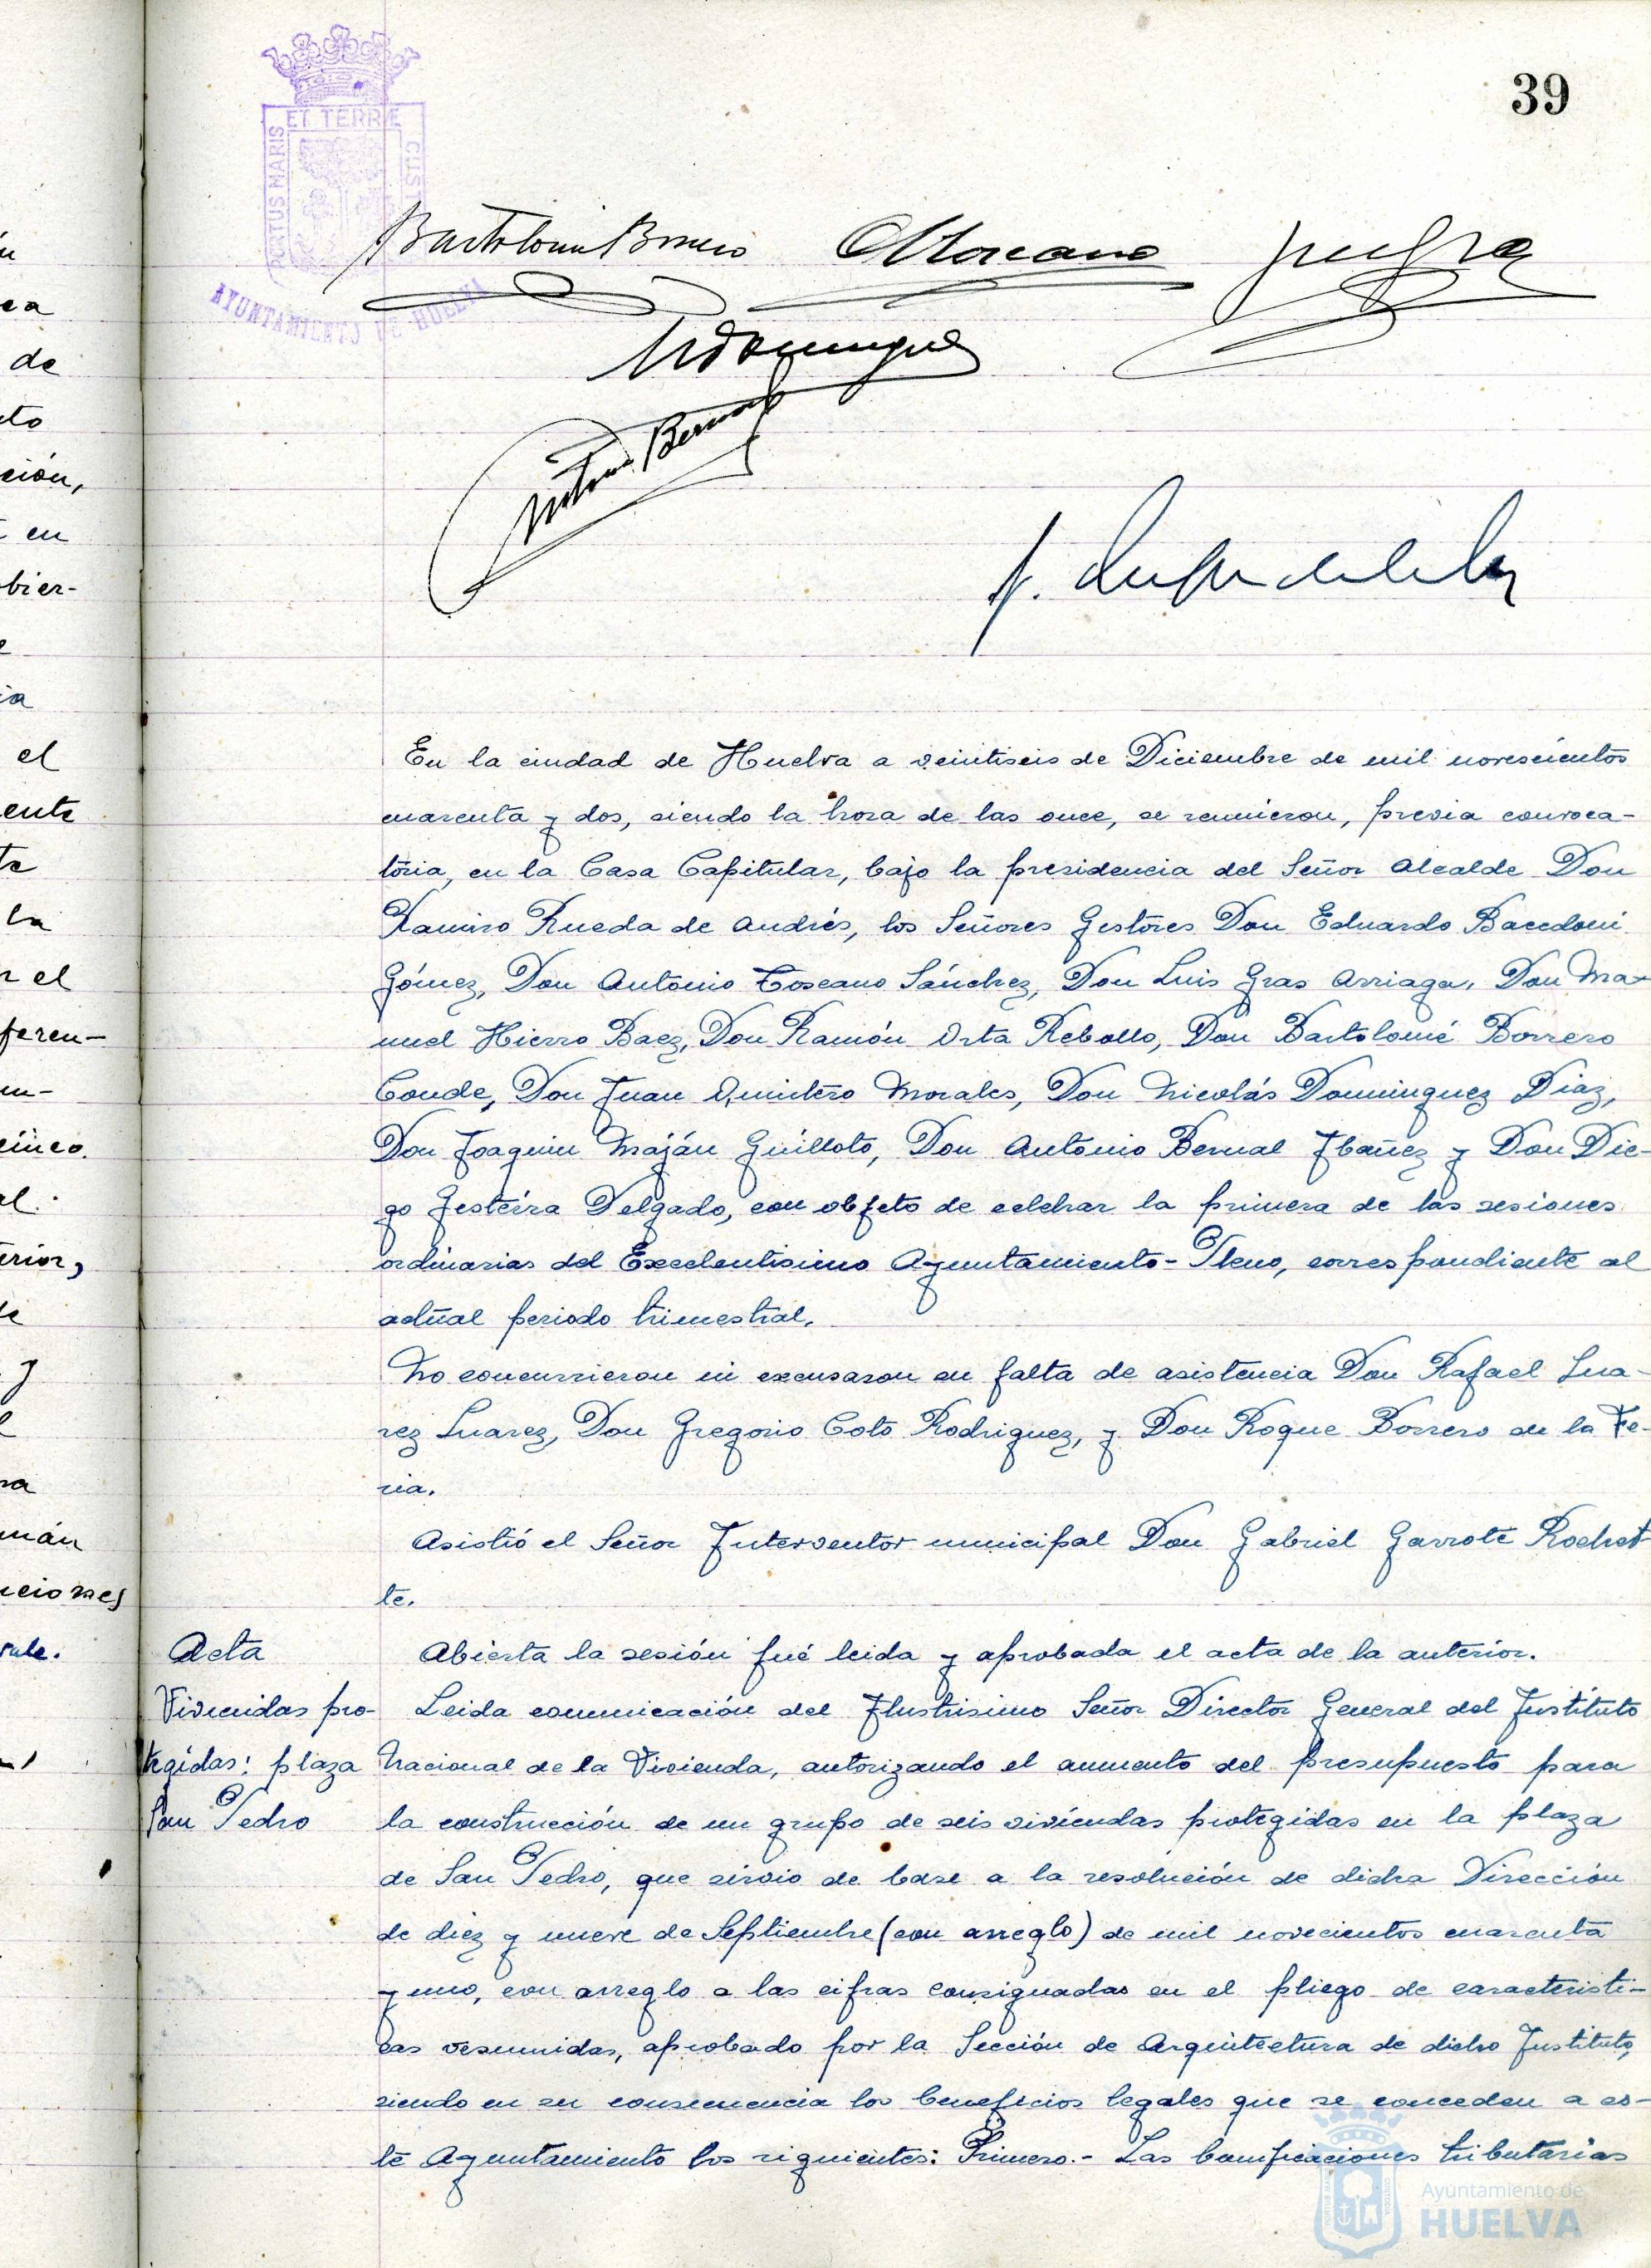 39
ET TERRÆ
PORTUS MARIS
CUST
AYUNTAMIENTO DE HUELVA
Bartolomé Borrero
Antonio Bernal
En la ciudad de Huelva a veintiseis de Diciembre de mil novescientos
cuarenta y dos, siendo la hora de las once, se reunieron, previa convoca-
toria, en la Casa Capitular, bajo la presidencia del Señor Alcalde Don
Ramiro Rueda de Andrés, los Señores Gestores Don Eduardo Bacedoni
Gómez, Don Antonio Toscano Sánchez, Don Luis Gras Arriaga, Don Ma-
nuel Hierro Baez, Don Ramón Orta Rebollo, Don Bartolomé Borrero
Conde, Don Juan Quintero Morales, Don Nicolás Dominguez Diaz,
Don Joaquin Maján Guilloto, Don Antonio Bernal Ibañez y Don Die-
go Gesteira Delgado, con objeto de celebrar la primera de las sesiones
ordinarias del Excelentisimo Ayuntamiento-Pleno, correspondiente al
actual periodo trimestral.
No concurrieron ni excusaron su falta de asistencia Don Rafael Sua-
rez Suarez, Don Gregorio Coto Rodriguez, y Don Roque Borrero de la Fe-
ria.
Asistió el Señor Interventor municipal Don Gabriel Garrote Rochet-
te.
Acta
Abierta la sesión fué leida y aprobada el acta de la anterior.
Viviendas pro-
tegidas: plaza
San Pedro
Leida comunicación del Ilustrisimo Señor Director General del Instituto
Nacional de la Vivienda, autorizando el aumento del presupuesto para
la construcción de un grupo de seis viviendas protegidas en la plaza
de San Pedro, que sirvio de base a la resolución de dicha Dirección
de diez y nueve de Septiembre (con arreglo) de mil novecientos cuarenta
y uno, con arreglo a las cifras consignadas en el pliego de caracteristi-
cas resumidas, aprobado por la Sección de Arquitectura de dicho Instituto,
siendo en su consecuencia los beneficios legales que se conceden a es-
te Ayuntamiento los siguientes: Primero.- Las bonificaciones tributarias
de
ción,
en
bier-
el
ente
la
r el
feren-
cinco.
al.
erior,
y
ciones
vale.
Ayuntamiento de
HUELVA